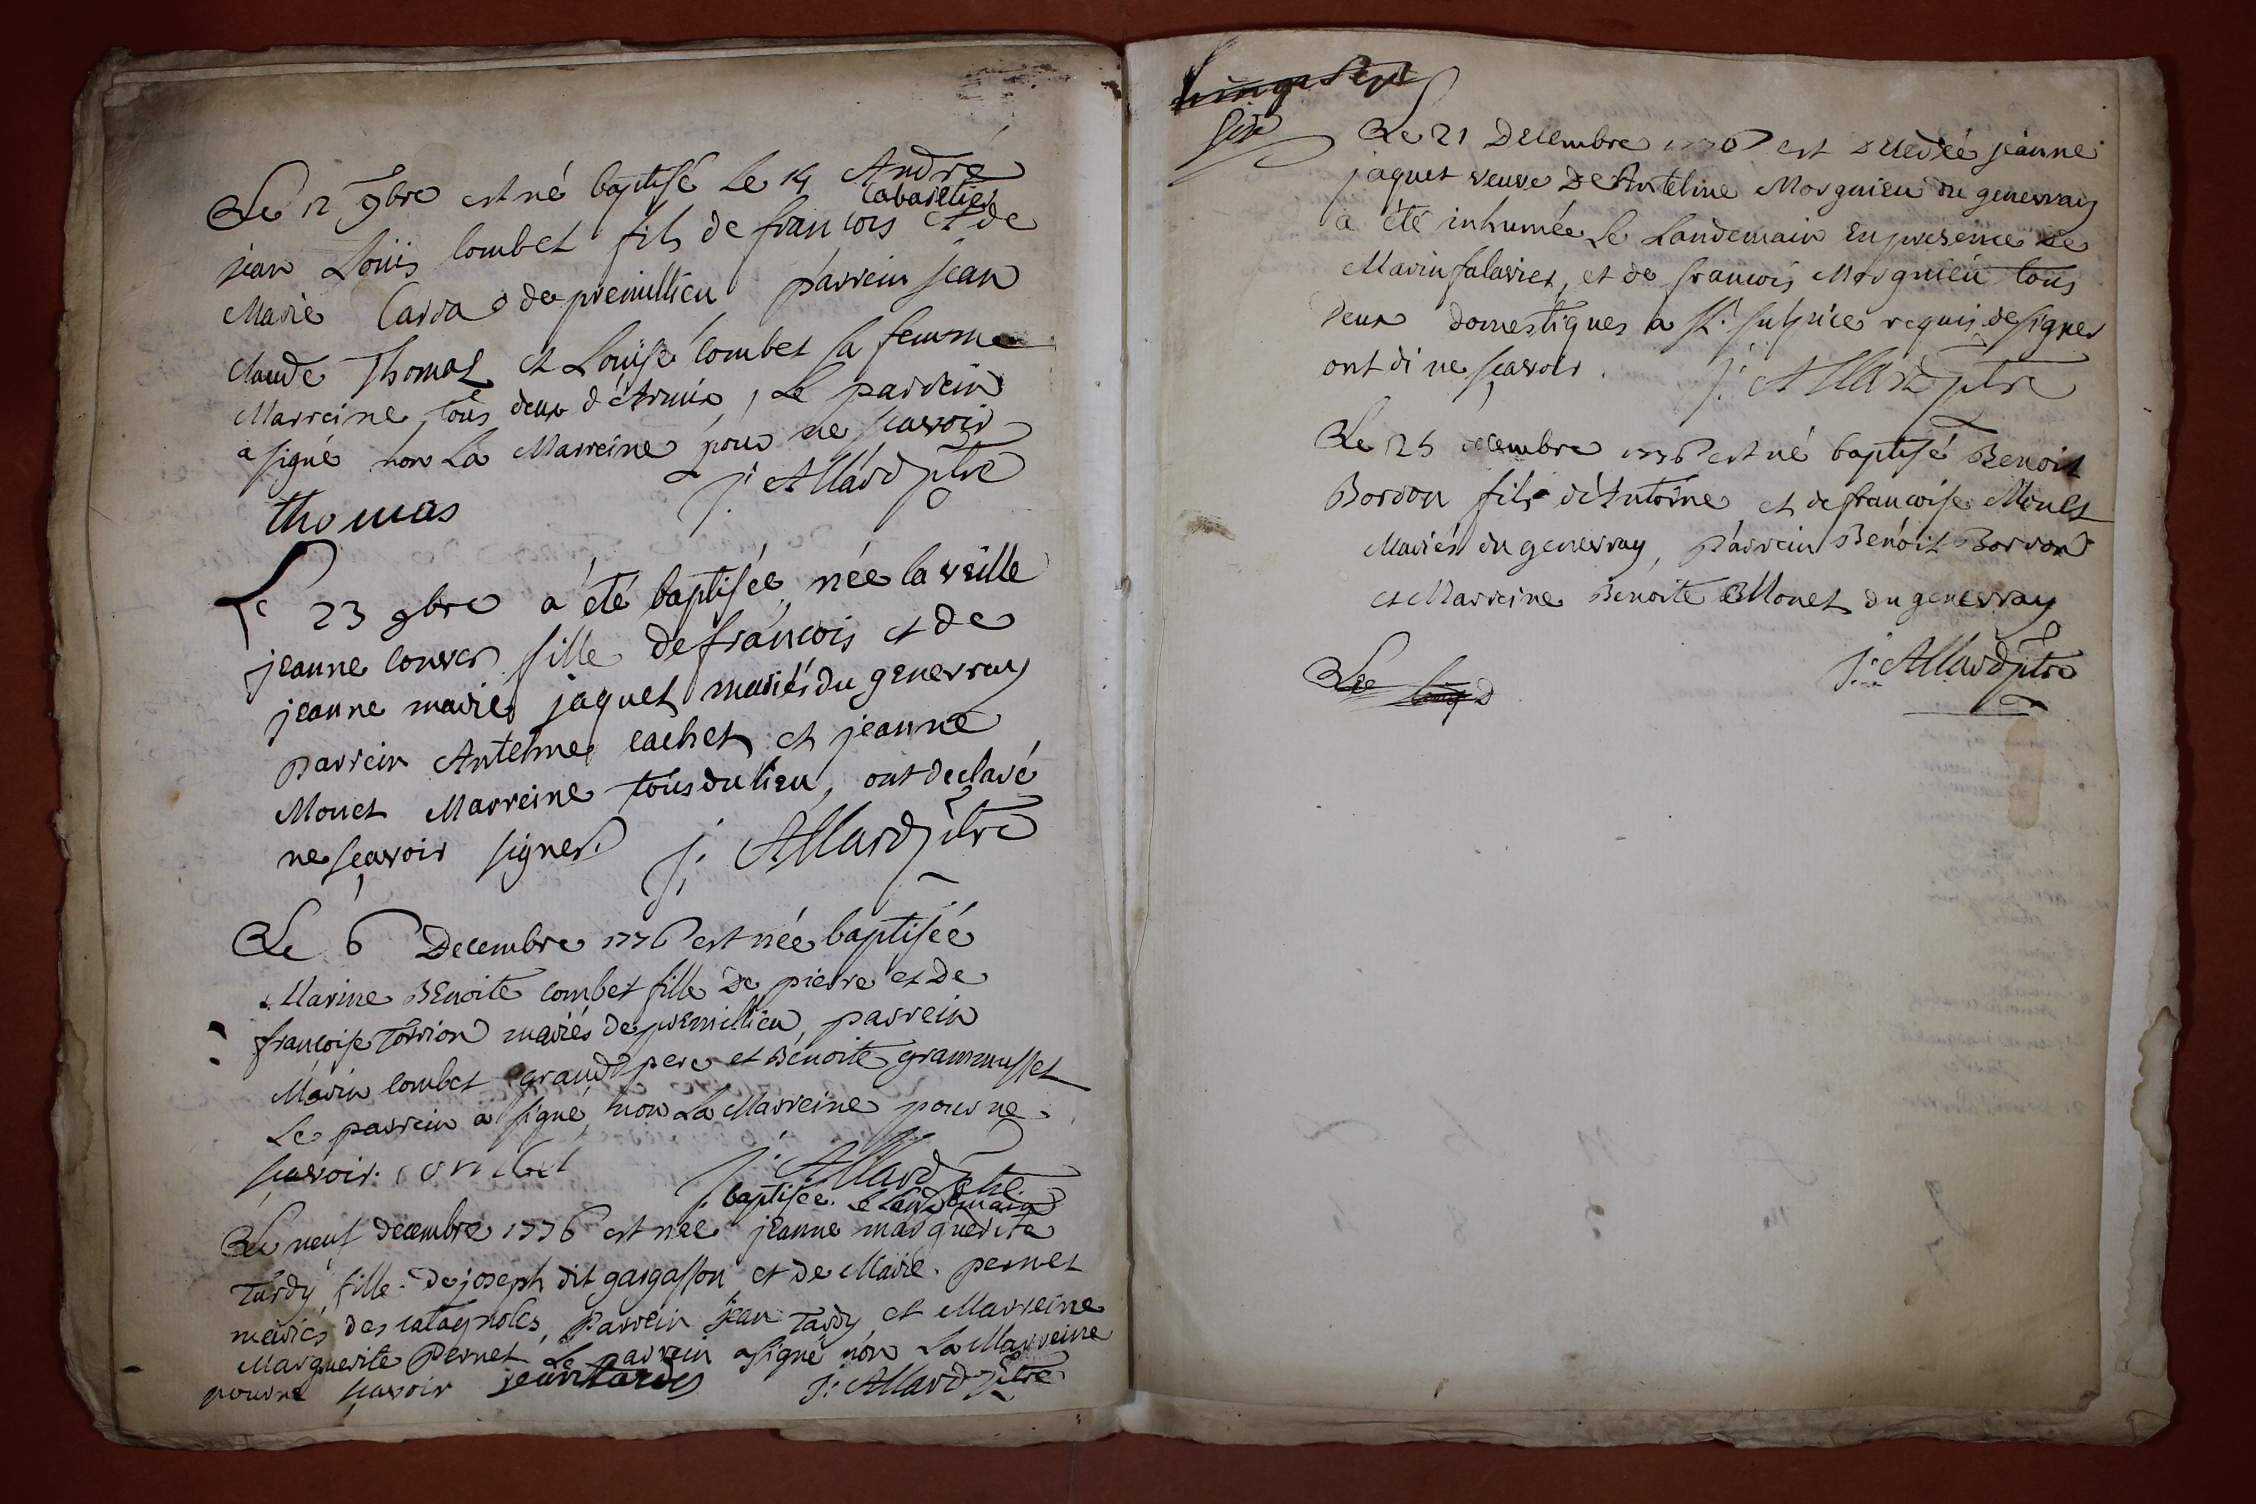 Le 12 9bre est né baptisé Le 14 André
cabaretier
jean Loüis Combet fils de françois et de
Marie Carra de premillieu parrein jean
claude Thomas et Loüise Combet sa femme
Marreine tous deux d'Armix, Le parrein
a signé non La Marreine pour ne sçavoir
thomas j: Allard ptre
Le 23 9bre a été baptisée née la veille
jeanne Couver fille de françois et de
jeanne marie jaquet mariés du genevray
parrein Antelme cachet et jeanne
Monet Marreine tous du lieu, ont declaré
ne sçavoir signer. j: Allard ptre
Le 6 Decembre 1776 est née baptisée
Marine Benoite Combet fille de pierre et de
françoise Torrion mariés de premillieu, parrein
Marin Combet grand pere et Benoite grammusset
Le parrein a signé non La Marreine pour ne
sçavoir. combet j: Allard ptre
baptisée Le Landemain
Le neuf decembre 1776 est née jeanne marguerite
Tardy fille de joseph dit gargasson et de Marie pernet
mariés des catagnoles, Parrein jean Tardy, et Marreine
Marguerite Pernet Le parrein a signé non La Marreine
pour ne sçavoir jean tardy j: Allard ptre
Sept
Le 21 Decembre 1776 est decedée jeanne
jaquet veuve de Antelme Morgnieu du genevray
a été inhumée Le Landemain en presence de
Marin falavier, et de françois Morgnieu tous
deux domestiques a St. sulpice requis de signer
ont di ne sçavoir. j: Allard ptre
Le 25 decembre 1776 est né baptisé Benoit
Bordon fils d'Antoine et de françoise Monet
Mariés du genevray, Parrein Benoit Bordon
et Marreine Benoite Monet du genevray
j: Allard ptre
Le